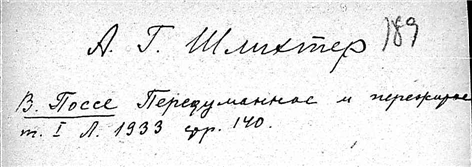 А. Г. Шлихтер 189
В. Поссе Передуманное и пережитое
т. I Л. 1933 стр. 140.